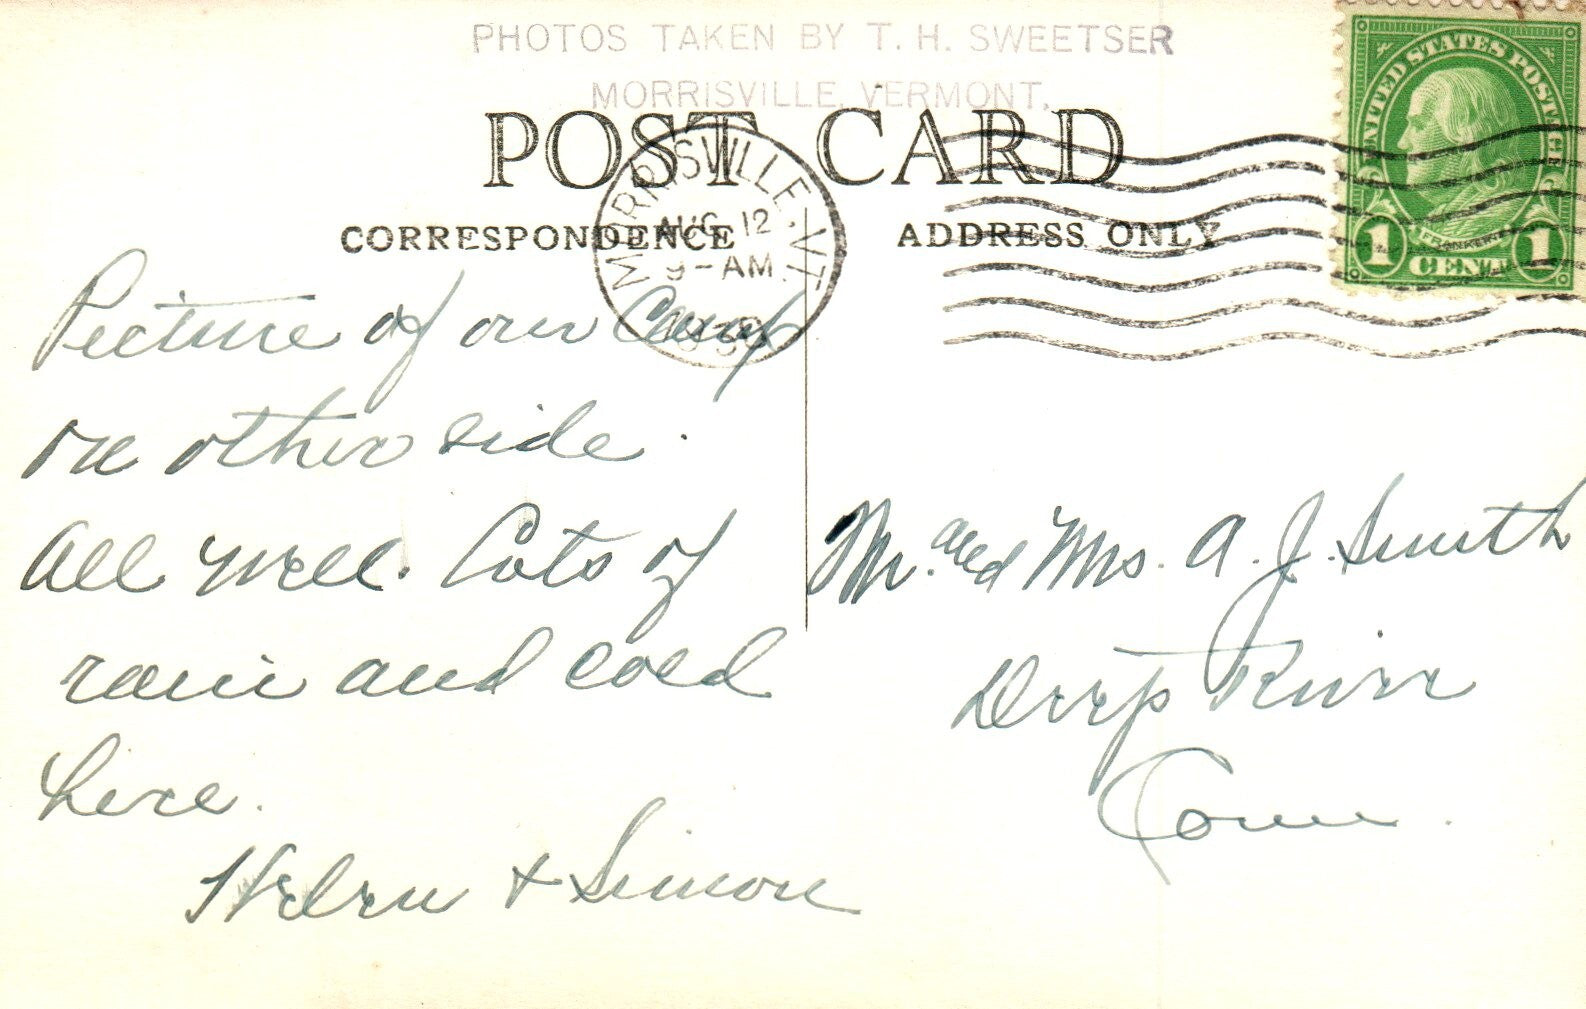 PHOTOS TAKEN BY T. H. SWEETSER
MORRISVILLE, VERMONT.
POST CARD
CORRESPONDENCE
ADDRESS ONLY
MORRISVILLE, VT.
AUG 12
9-AM
UNITED STATES POSTAGE
FRANKLIN
1 CENT 1
Picture of our Camp
on other side.
All well. Lots of
rain and cold
here.
Helen + Simon
Mr. and Mrs. A. J. Smith
Deep River
Conn.